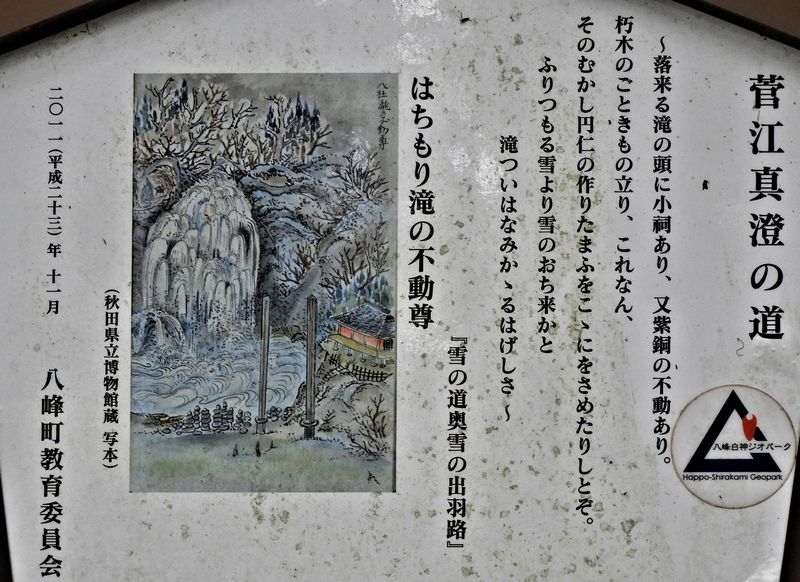 菅江真澄の道
～落来る滝の頭に小祠あり、又紫銅の不動あり。
朽木のごときもの立り、これなん、
そのむかし円仁の作りたまふをこゝにをさめたりしとぞ。
ふりつもる雪より雪のおち来かと
滝ついはなみかゝるはげしさ～
『雪の道奥雪の出羽路』
はちもり滝の不動尊
（秋田県立博物館蔵 写本）
二〇一一（平成二十三）年 十一月
八峰町教育委員会
八峰白神ジオパーク
Happo-Shirakami Geopark